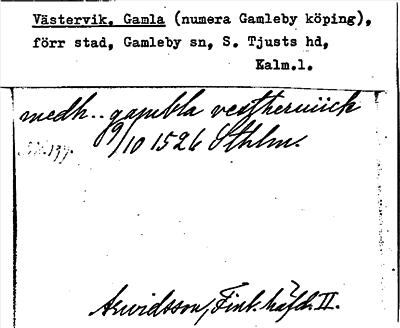 Västervik, Gamla (numera Gamleby köping),
förr stad, Gamleby sn, S. Tjusts hd,
Kalm.l.
medh.. gambla vestherwiick
9/10 1526 Sthlm.
Arwidsson, Finl. häfd. II.